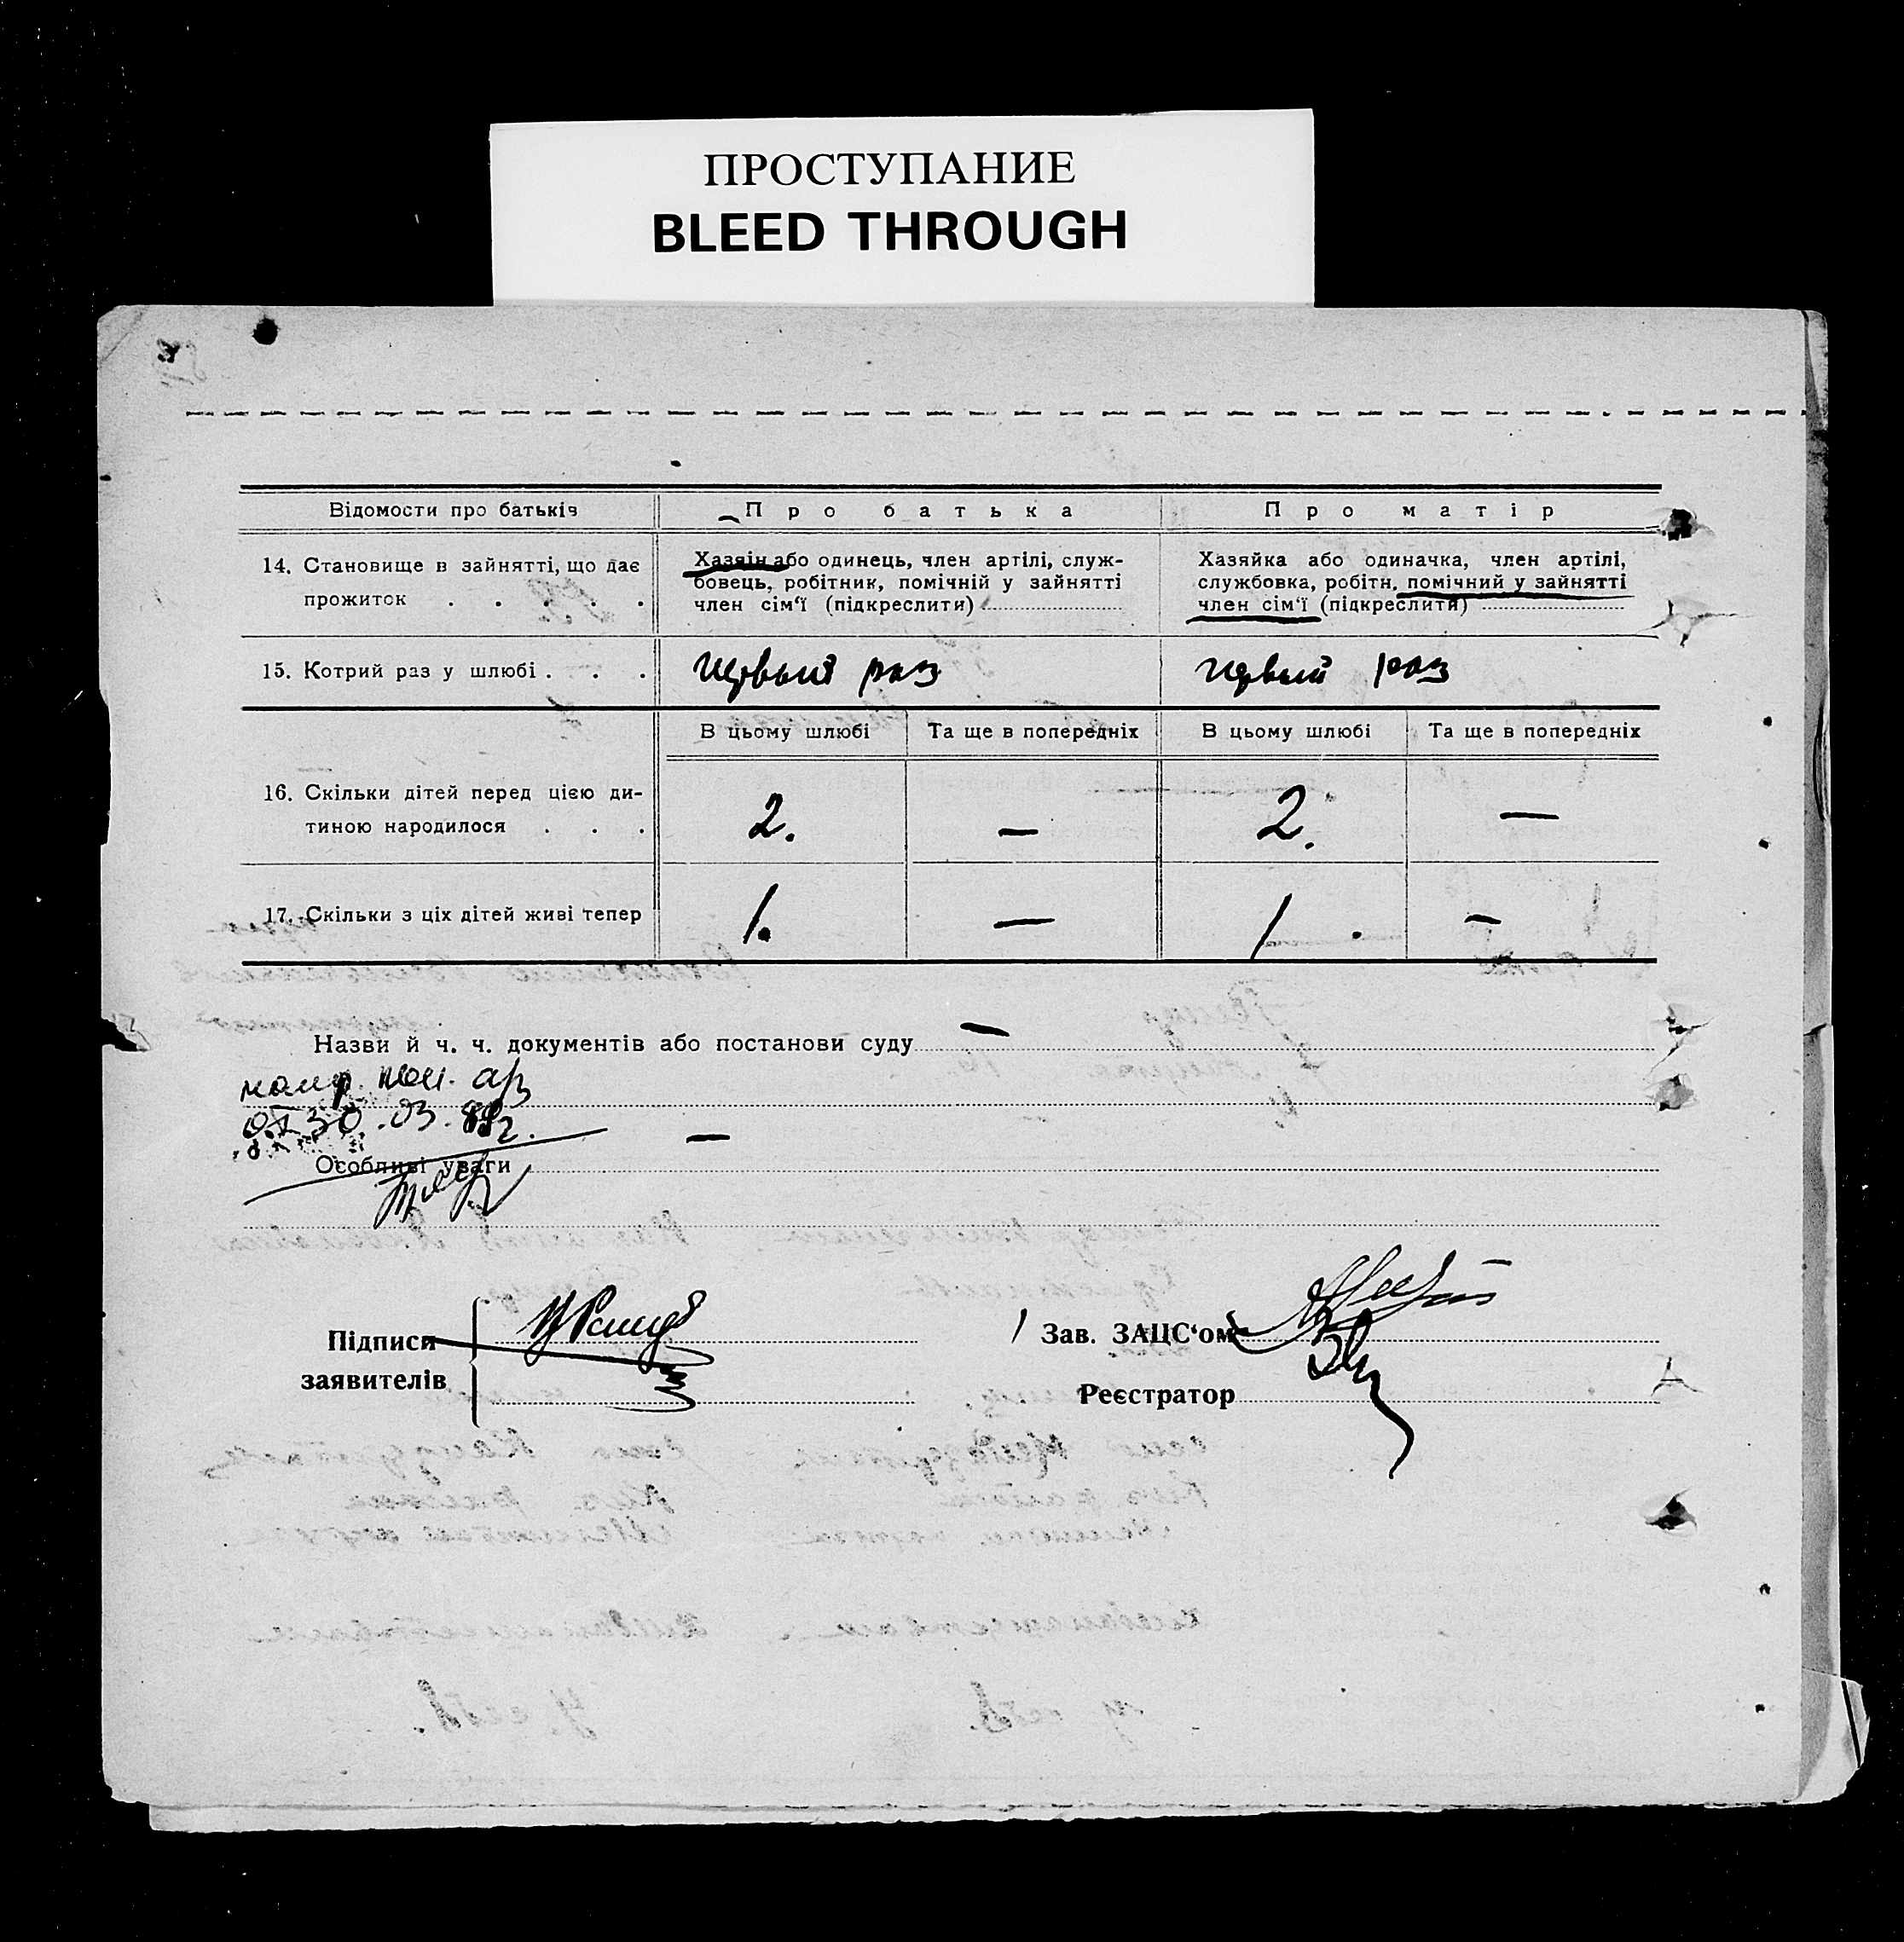 ПРОСТУПАНИЕ
BLEED THROUGH
Відомости про батьків
Про батька
Про матір
14. Становище в зайнятті, що дає
прожиток . . . . .
Хазяін або одинець, член артілі, служ-
бовець, робітник, помічній у зайнятті
член сім‘ї (підкреслити)
Хазяйка або одиначка, член артілі,
службовка, робітн. помічний у зайнятті
член сім‘ї (підкреслити)
15. Котрий раз у шлюбі . . .
первый раз
первый раз
В цьому шлюбі
Та ще в попередніх
В цьому шлюбі
Та ще в попередніх
16. Скільки дітей перед цією ди-
тиною народилося . . .
2. — 2. —
17. Скільки з ціх дітей живі тепер
1. — 1. —
Назви й ч. ч. документів або постанови суду —
30.03.89г.
—
Особливі уваги
Підписи
заявителів
Зав. ЗАЦС‘ом
Реєстратор